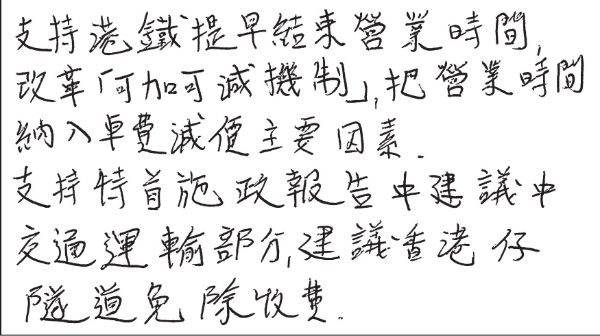 支持港鐵提早結束營業時間,
改革「可加可減機制」,把營業時間
納入車費減價主要因素.
支持特首施政報告中建議中
交通運輸部分,建議香港仔
隧道免除收費.